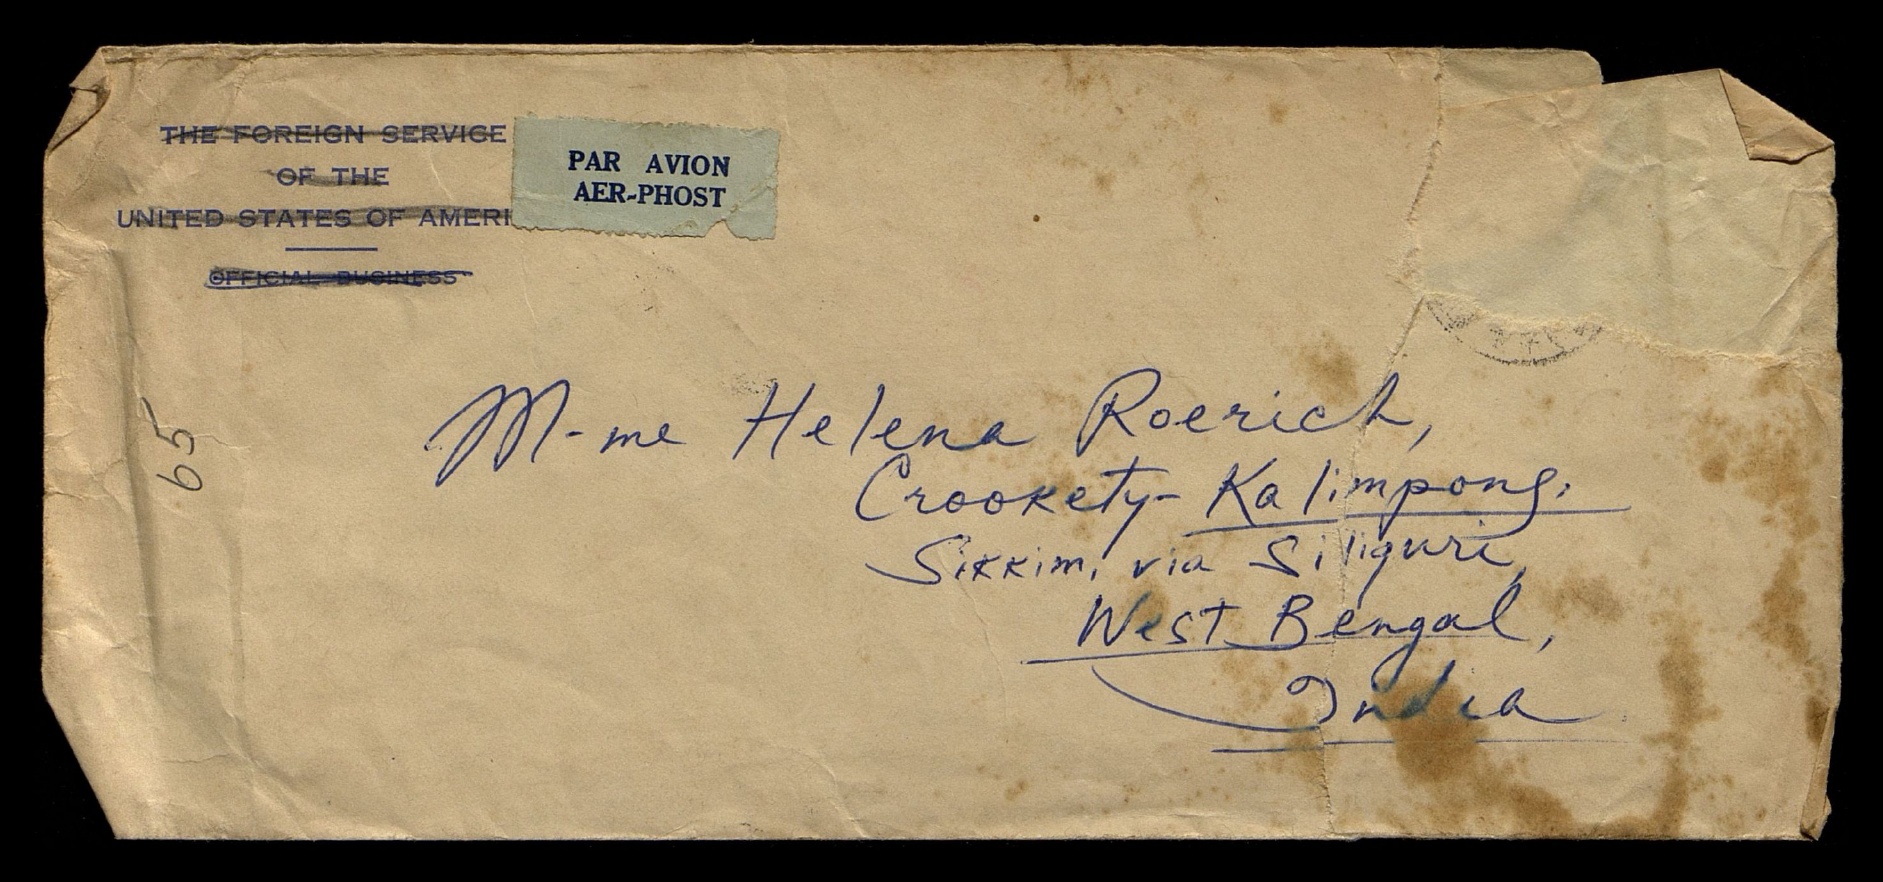 THE FOREIGN SERVICE
OF THE
UNITED STATES OF AMERI
OFFICIAL BUSINESS
PAR AVION
AER-PHOST
65
M-me Helena Roerich,
Crookety- Kalimpong.
Sikkim, via Siliguri,
West Bengal,
India